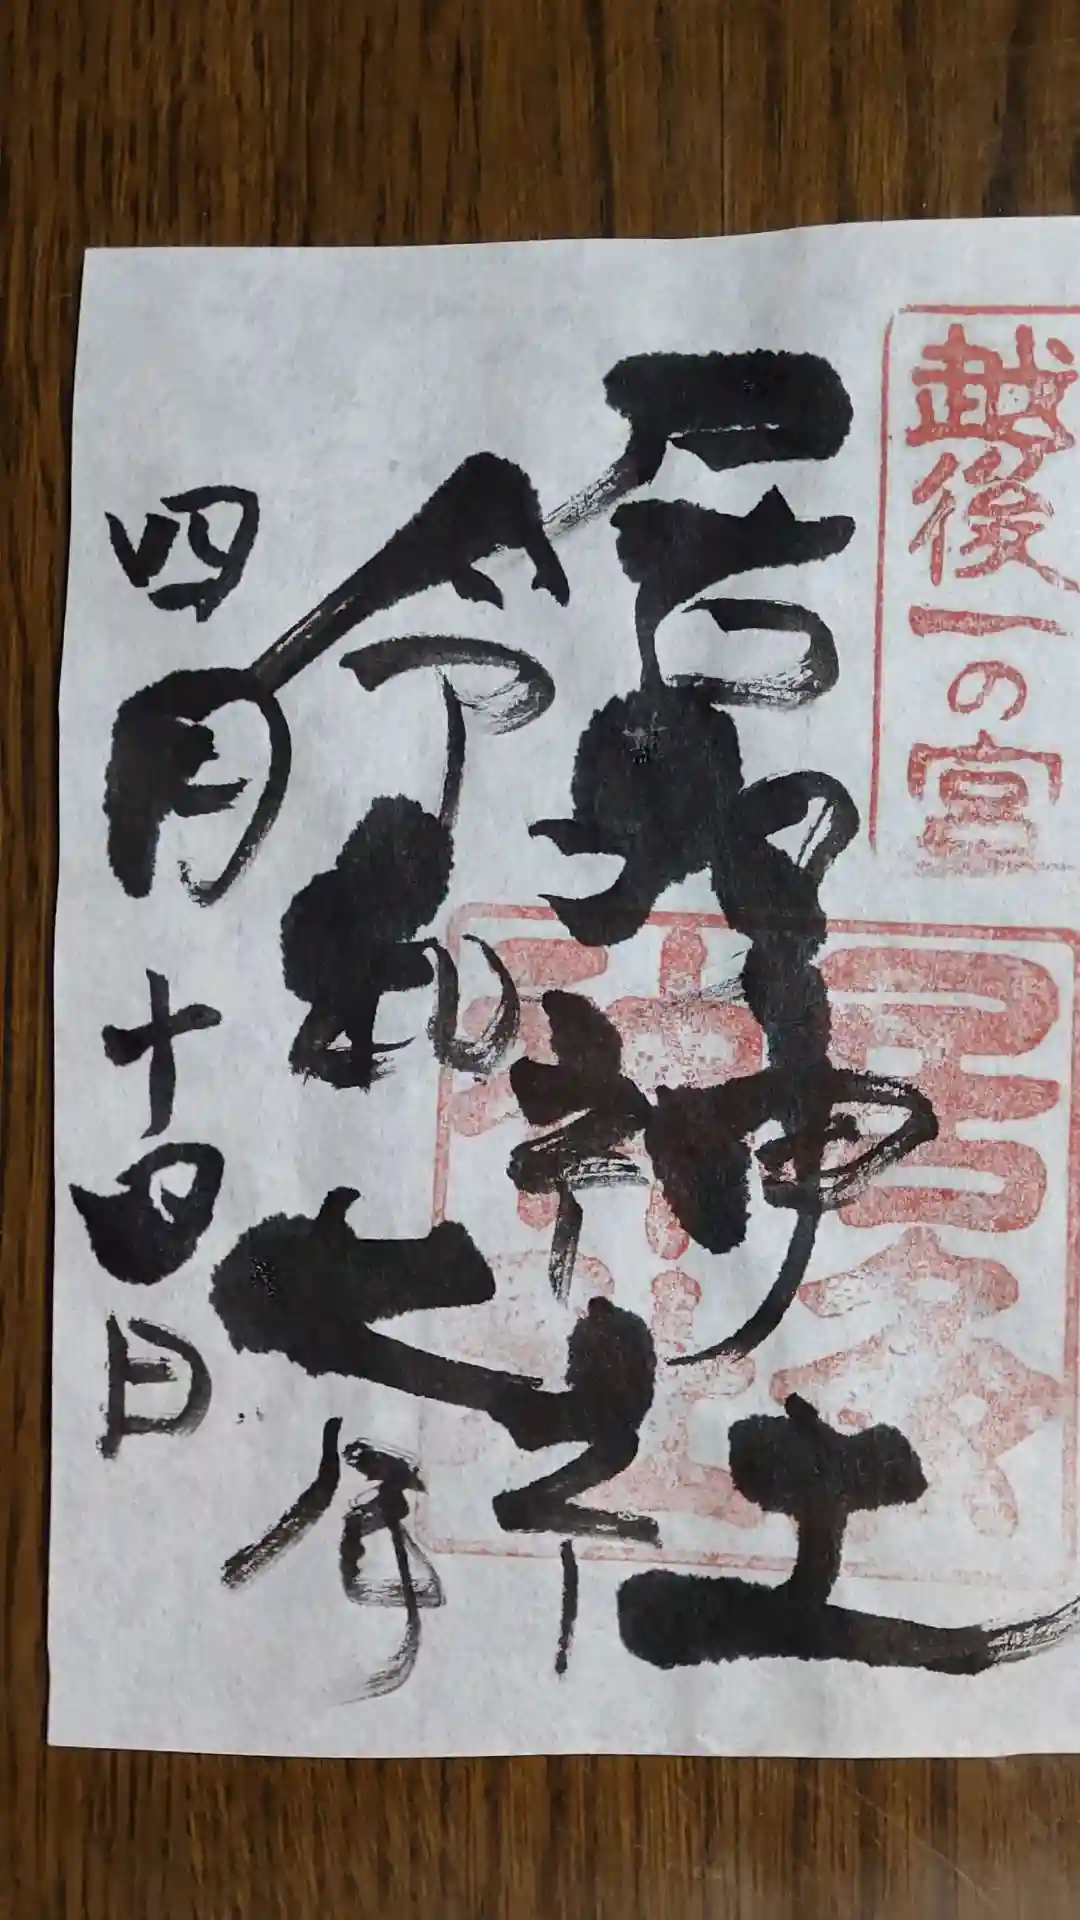 越後一の宮
居多神社
居多
神社
令和七年
四月十四日